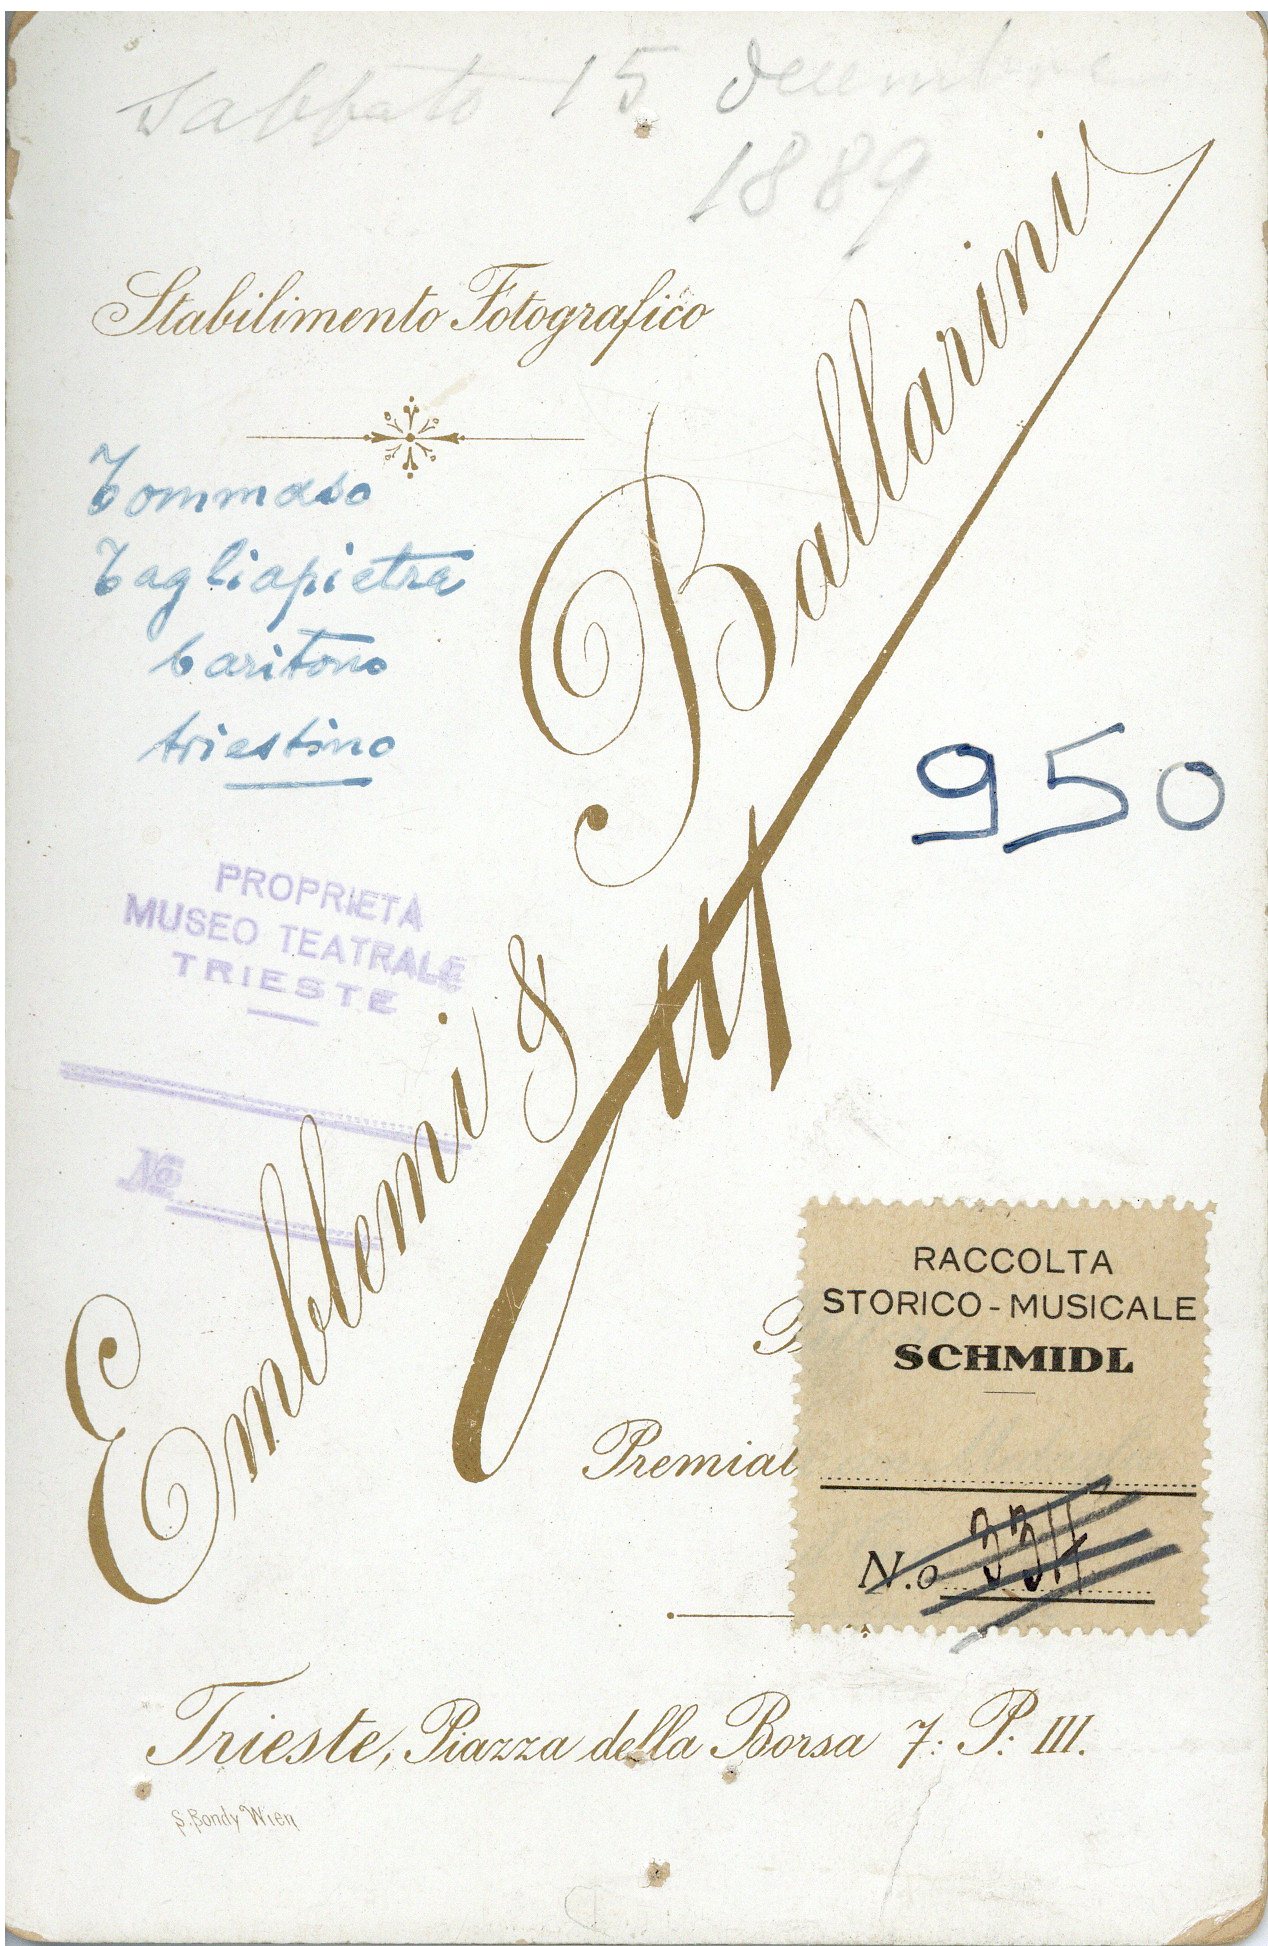 Sabbato 15 decembre
1889
Stabilimento Fotografico
Tommaso
Tagliapietra
baritono
triestino
Emblemi & Jutt Ballarini
950
PROPRIETÀ
MUSEO TEATRALE
TRIESTE
No
RACCOLTA
STORICO-MUSICALE
SCHMIDL
Premiat
N.o 334
Trieste, Piazza della Borsa 7: P: III.
S. Bondy Wien